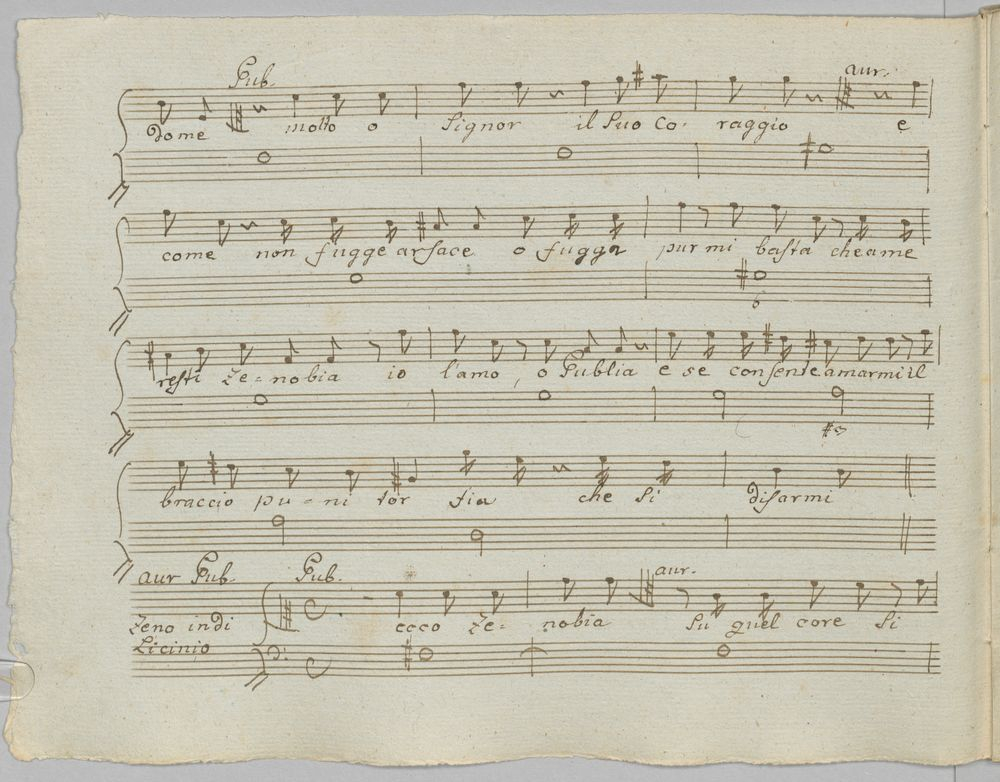 Pub. aur.
dome molto o Signor il suo co- raggio e
come non fugge arsace o fugga pur mi basta che a me
resti Ze=nobia io l'amo, o Publia e se consente amarmi il
braccio pu=ni tor sia che si disarmi
aur Pub. Pub. aur.
Zeno indi ecco Ze= nobia su quel core si
Licinio